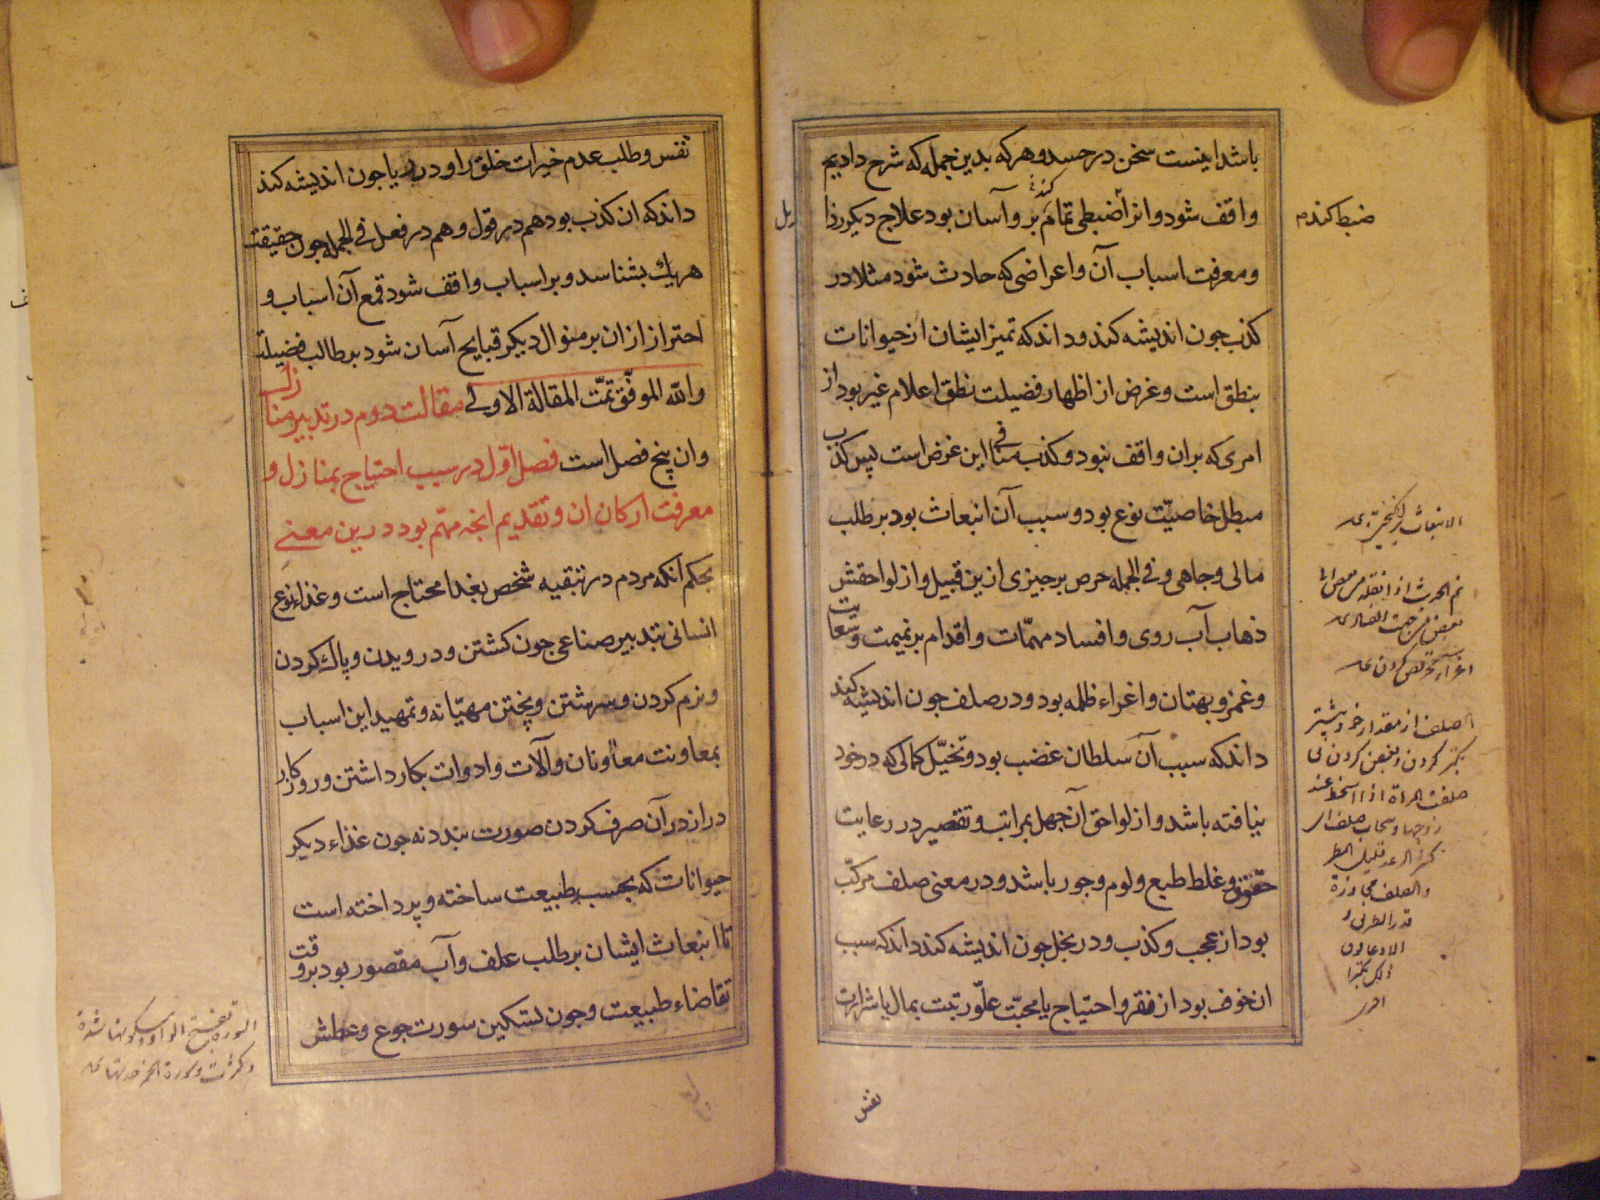 باشد اینست سخن در حسد و هر که بدین جمله که شرح دادیم
واقف شود و انرا ضبطی تمام کند بر و آسان بود علاج دیکر رذا
یل
ومعرفت اسباب آن و اعراضی که حادث شود مثلا در
کذب جون اندیشه کند و داند که تمیز ایشان از حیوانات
بنطق است و غرض از اظهار فضیلت نطق اعلام غیر بود از
امری که بران واقف نبود و کذب منافی این غرض است پس کذب
مبطل خاصیّت نوع بود و سبب آن انبعاث بود بر طلب
مالی و جاهی و فی الجمله حرص بر جیزی ازین قبیل و از لواحقش
ذهاب آب روی و افساد مهمّات و اقدام بر نمیمت و سعایت
و غمز و بهتان و اغراء ظلمه بود و در صلف جون اندیشه کند
داند که سبب آن سلطان غضب بود و تخیّل کمالی که در خود
نیافته باشد و از لواحق آن جهل بمراتب و تقصیر در رعایت
حقوق و غلط طبع و لوم و جور باشد و در معنی صلف مرکّب
بود از عجب و کذب و در بخل جون اندیشه کند داند که سبب
ان خوف بود از فقر و احتیاج یا محبّت علّو رتبت بمال یا شرارت
نفس
ضبط کندم
الصلف از مقدار خود بیشتر
تکبر کردن
نفس و طلب عدم خیرات خلق را و در ریا جون اندیشه کند
داند که ان کذب بود هم در قول و هم در فعل فی الجمله جون حقیقت
هر یک بشناسد و بر اسباب واقف شود قمع آن اسباب و
احتراز ازان بر منوال دیکر قبایح آسان شود بر طالب فضیلت
والله الموفّق تمّت المقالة الاولی مقالت دوم در تدبیر منازل
وان پنج فصل است فصل اوّل در سبب احتیاج بمنازل و
معرفت ارکان ان و تقدیم انجه مهّم بود درین معنی
بحکم انکه مردم در تبقیه شخص بغدا محتاج است و غذاء نوع
انسانی بتدبیر صناعی جون کشتن و درویدن و پاک کردن
و نرم کردن و سرشتن و پختن مهیّا نه و تمهید این اسباب
بمعاونت معاونان و آلات و ادوات بکار داشتن و روزکار
دراز در آن صرف کردن صورت نبندد نه جون غذاء دیکر
حیوانات که بحسب طبیعت ساخته و پرداخته است
تا انبعاث ایشان بر طلب علف و آب مقصور بود بر وقت
تقاضاء طبیعت و جون تسکین سورت جوع و عطش